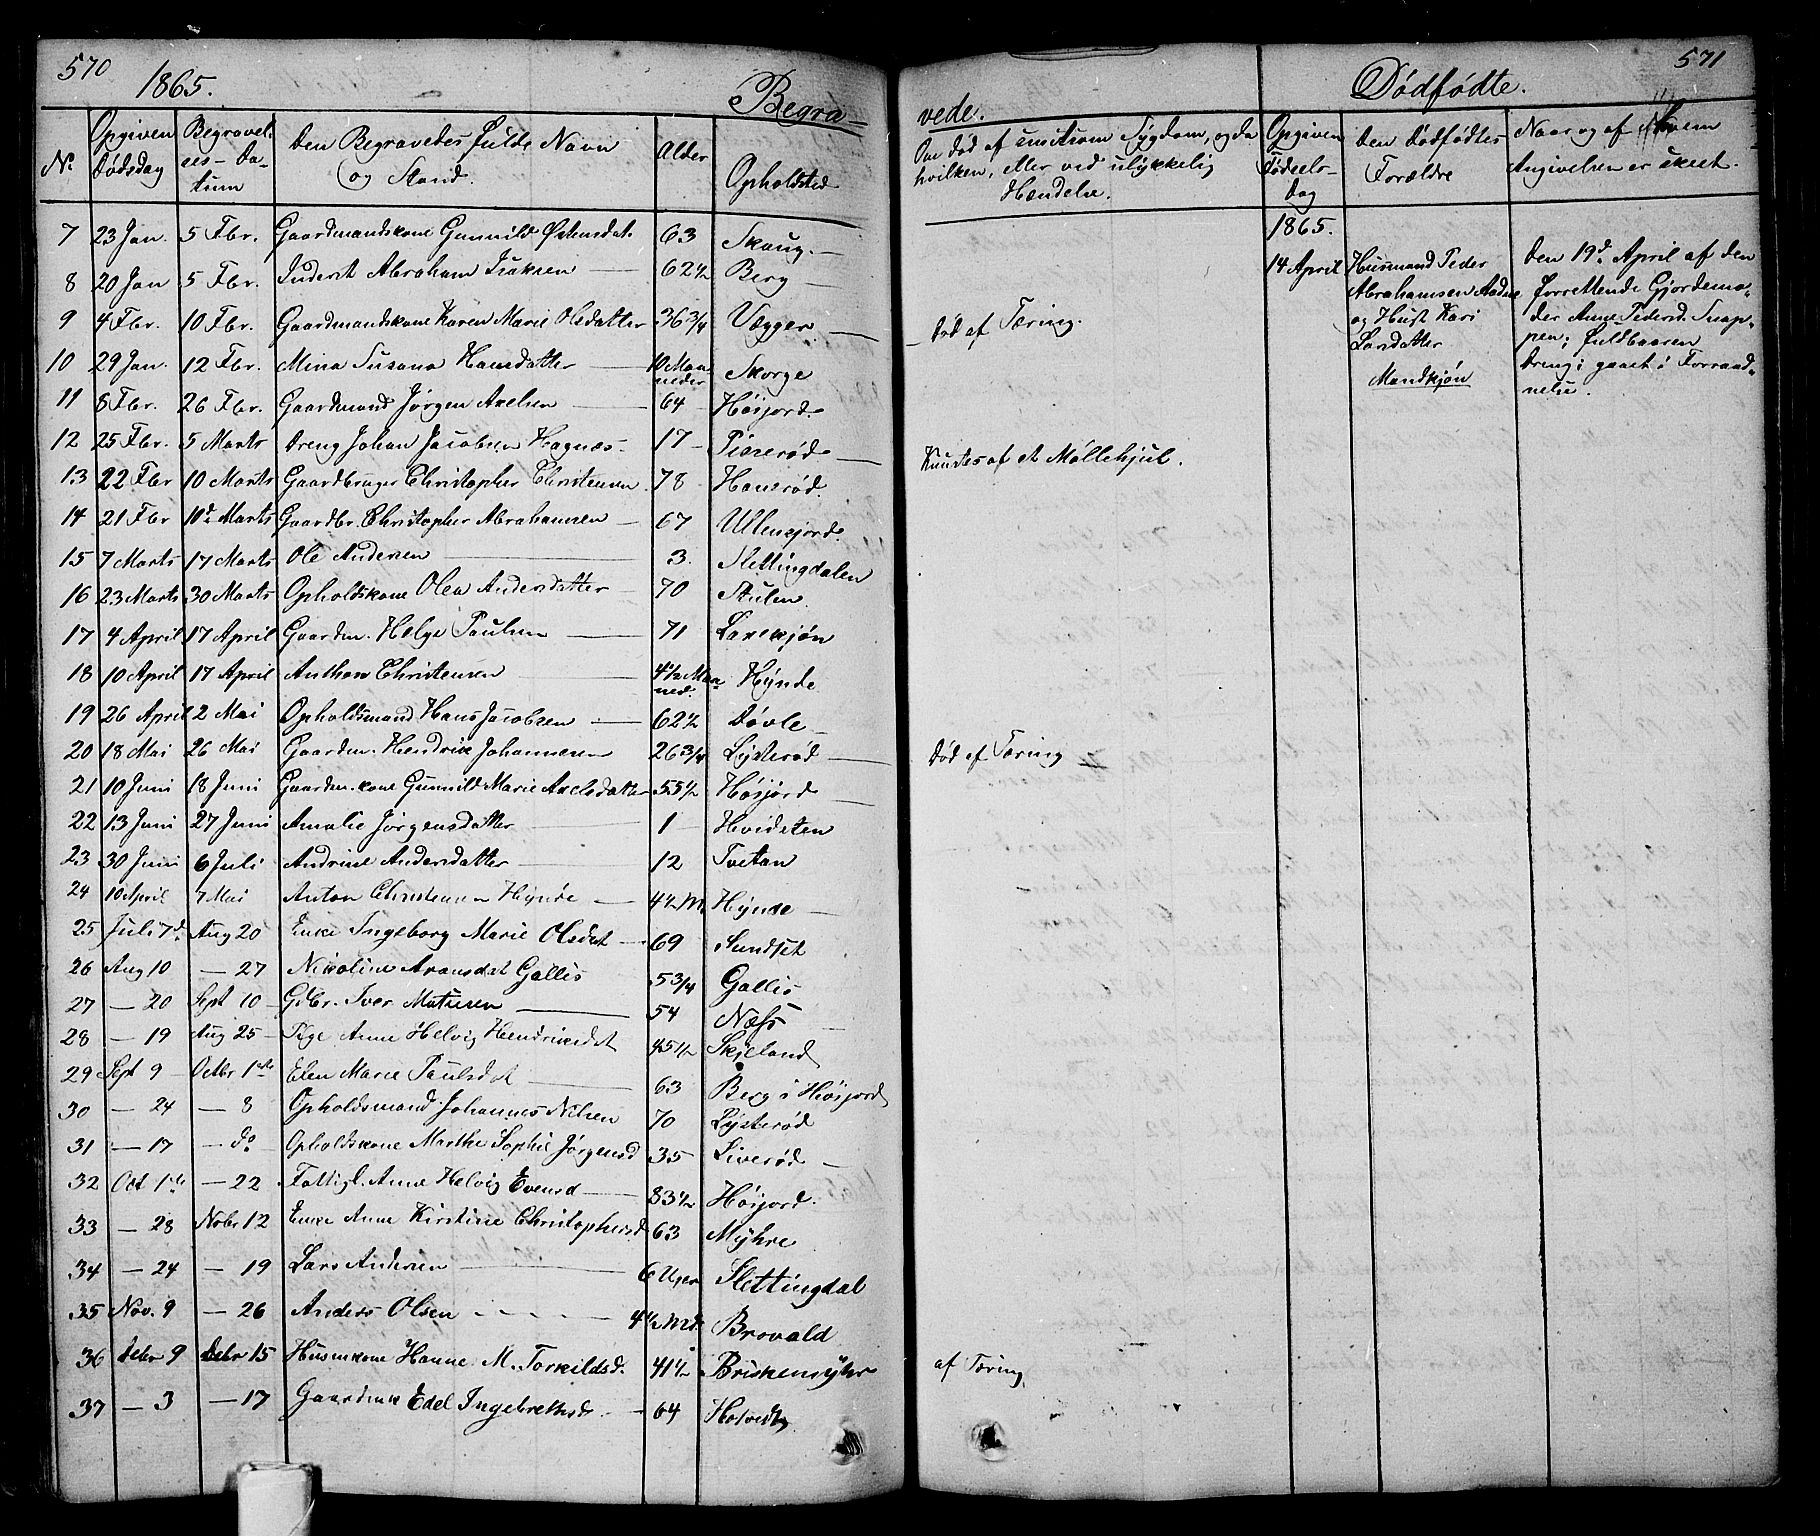 570
1865.
Begra-
No
Opgiven Dødsdag
Begravelses-Datum
Den Begravedes fulde Navn og Stand.
Alder
Opholdsted
7 23 Jan. 5 Fbr. Gaardmandskone Gunnild Østensdat. 63 Skaug.
8 20 Jan 5 Fbr. Inderst Abraham Isaksen 62½ Berg
9 4 Fbr. 10 Fbr. Gaardmandskone Karen Marie Olsdatter 36 3/4 Vegger
10 29 Jan. 12 Fbr. Mina Susana Hansdatter 10 Maaneder Skorge
11 8 Fbr. 26 Fbr. Gaardmand Jørgen Axelsen 64 Høijord
12 25 Fbr. 5 Marts Dreng Johan Jacobsen Hagnæs 17
13 22 Fbr 10 Marts Gaardbruger Christopher Christensen 78 Hanerød.
14 21 Fbr 10d Marts Gaardbr. Christopher Abrahamsen 67
15 7 Marts 17 Marts Ole Andersen 3. Slettingdalen
16 23 Marts 30 Marts Opholdskone Olea Andersdatter 70 Stulen
17 4 April 17 April Gaardm. Helge Paulsen 71
18 10 April 17 April Anthon Christensen 4½ Maaned. Hÿnde
19 26 April 2 Mai Opholdsmand Hans Jacobsen 62½ Døvle
20 18 Mai 26 Mai Gaardm. Hendrik Johannesen 26 3/4 Lÿsterød
21 10 Juni 18 Juni Gaardm.kone Gunnild Marie Axelsdatter 55½ Høijord
22 13 Juni 27 Juni Amalie Jørgensdatter 1 Hvidsten
23 30 Juni 6 Juli Andrine Andersdatter 12 Tvetan
24 10 April 7 Mai Anton Christensen Hÿnde 4½ M. Hÿnde
25 Juli 7d. Aug 20 Enke Ingeborg Marie Olsdat 69 Sundset
26 Aug 10 — 27 Nicoline Aronsdat Gallis 5 3/4 Gallis
27 — 20 Sept 10 Gdbr. Iver Matisen 54 Næss
28 — 19 Aug 25 Pige Anne Helvig Hendriksdat 45½ Skjeland
29 Sept 9 Octbr 1ste Elen Marie Paulsdat 63 Berg i Høijord
30 — 24 — 8 Opholdsmand Johannes Nilsen 70 Lÿsterød
31 — 17 — do Opholdskone Marthe Sophie Jørgensd 35 Liverød
32 Oct 1ste — 22 Fattigl. Anne Helvig Evensd 83½ Høijord.
33 — 28 Nobr 12 Enke Anne Kirstine Christophersd 63 Mÿhre
34 — 24 — 19 Lars Andersen 6 Uger Slettingdal
35 Nov. 9 — 26 Anders Olsen 4½ Md. Brovald
36 Debr 9 Debr 15 Husmkone Hanne M. Torkildsd. 41½ Briskemÿhr
37 — 3 — 17 Edel Ingebrethsd. 64 Hotvedt
571
vede.
Dødfødte.
Om død af smitsom Sygdom, og da
hvilken, eller ved ulykkelig
Hændelse.
Opgiven Fødsels-Dag
Den Dødfødtes Forældre
Naar og af Hvem
Angivelsen er skeet.
Død af Tæring.
Knustes af et Møllehjul.
Død af Tæring
af Tæring
1865.
14 April
Husmand Peder
Abrahamsen
og Hust Kari
Larsdatter
Mandkjøn
Den 19d. April af den
forrettende Gjordemo-
der Anne Pedersd. Snap-
pen; fuldbaaren
Dreng; gaaet i Forraad-
nelse.